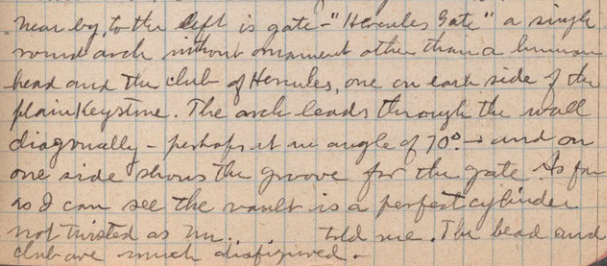 near by, to the left is gate - "Hercules Gate" a single
round arch without ornament other than a human
head and the club of Hercules, one on each side of the
plain Keystone. The arch leads through the wall
diagonally - perhaps at an angle of 70° - and on
one side shows the groove for the gate. As far
as I can see the vault is a perfect cylinder
not twisted as Mr. . . told me. The head and
club are much disfigured.